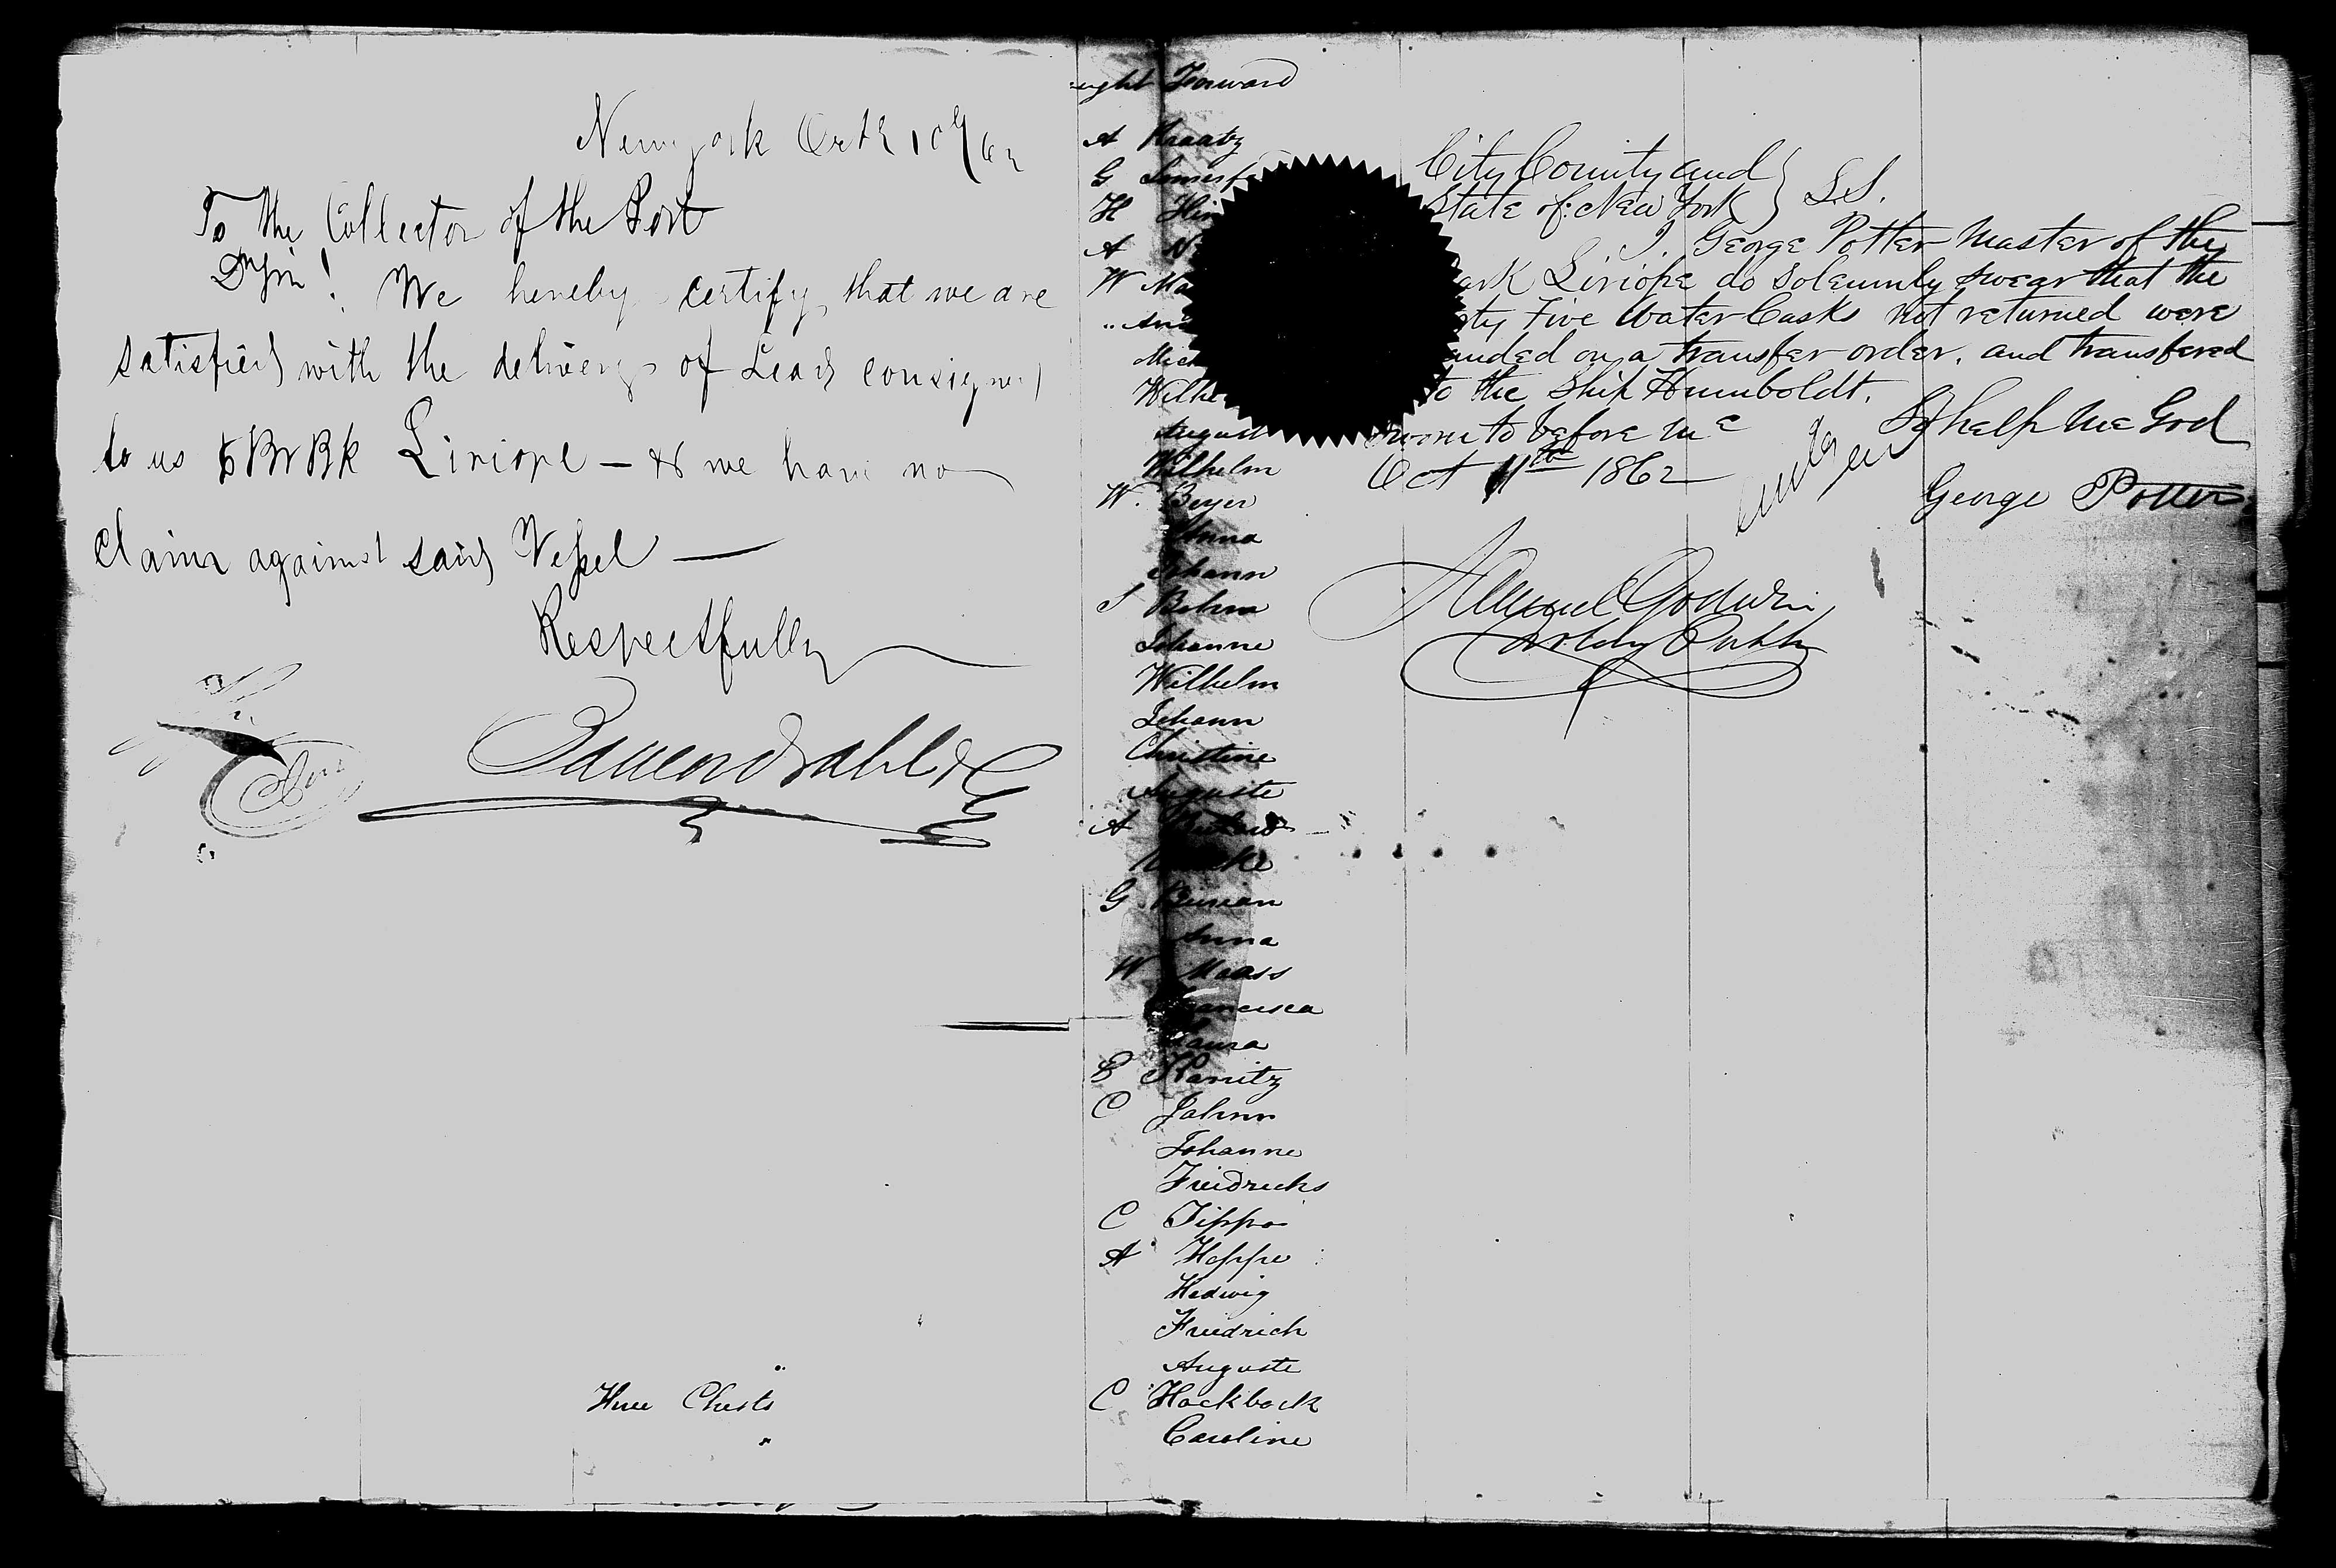 New York Octr 10th/62
To the Collector of the Port
Dr Sir! We hereby certify that we are
satisfied with the delivery of Lead consigned
to us Br Bk Liriope — & we have no
claim against said Vessel —
Respectfully
Three Chests
"
"
Forward
A Kraatz
G
H
A
W
Wilhe
August
Wilhelm
W. Beyer
Anna
Johann
S Behm
Johanne
Wilhelm
Johann
Christine
Auguste
A
G Burian
Anna
W Maass
Francisca
Laura
E Kanitz
C Jahnn
Johanne
Friedricks
C Tippo
A Hoppe
Hedwig
Friedrich
Auguste
C Hackback
Caroline
City County and } S.S.
State of New York
I. George Potter Master of the
ark Liriope do solemnly swear that the
ty Five Water Casks not returned were
anded on a transfer order, and transfered
to the Ship Humboldt.
So help me God
Sworn to before me
Oct 11th 1862
George Potter
Samuel Godwin
Notary Public